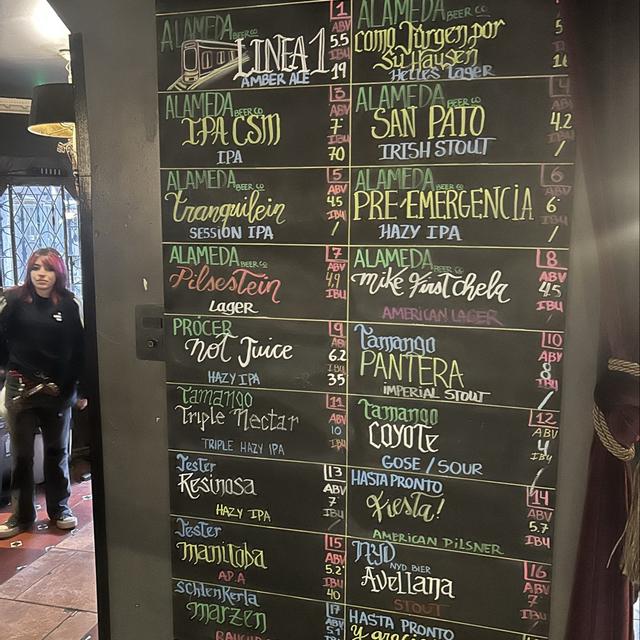 1
ALAMEDA BEER CO
ABV
LINEA 1
5.5
IBU
AMBER ALE
19
ALAMEDA BEER CO
como Jürgen por
su Hausen
Helles LAGER
3
ALAMEDA BEER CO
ABV
IPA CSM
7
IBU
IPA
70
4
ALAMEDA BEER CO
ABV
SAN PATO
4.2
IBU
IRISH STOUT
/
5
ALAMEDA BEER CO
ABV
tranquilein
4.5
IBU
SESSION IPA
/
6
ALAMEDA BEER CO
ABV
PRE-EMERGENCIA
6
IBU
HAZY IPA
/
7
ALAMEDA BEER CO
ABV
Pilsestein
4.9
IBU
LAGER
8
ALAMEDA BEER CO
ABV
mike First chela
4.5
IBU
AMERICAN LAGER
9
PRÓCER
ABV
Not Juice
6.2
IBU
HAZY IPA
35
10
Tamango
ABV
PANTERA
8
IBU
IMPERIAL STOUT
/
11
Tamango
ABV
Triple Nectar
10
IBU
TRIPLE HAZY IPA
12
Tamango
ABV
COYOTE
4
IBU
GOSE / SOUR
/
13
Jester
ABV
Resinosa
7
IBU
HAZY IPA
/
14
HASTA PRONTO
ABV
Fiesta!
5.7
IBU
AMERICAN PILSNER
15
Jester
ABV
manitoba
5.2
IBU
A.P.A
40
16
NYD
NYD BIER
ABV
Avellana
7
IBU
STOUT
17
schlenkerla
ABV
Marzen
5.1
IBU
HASTA PRONTO